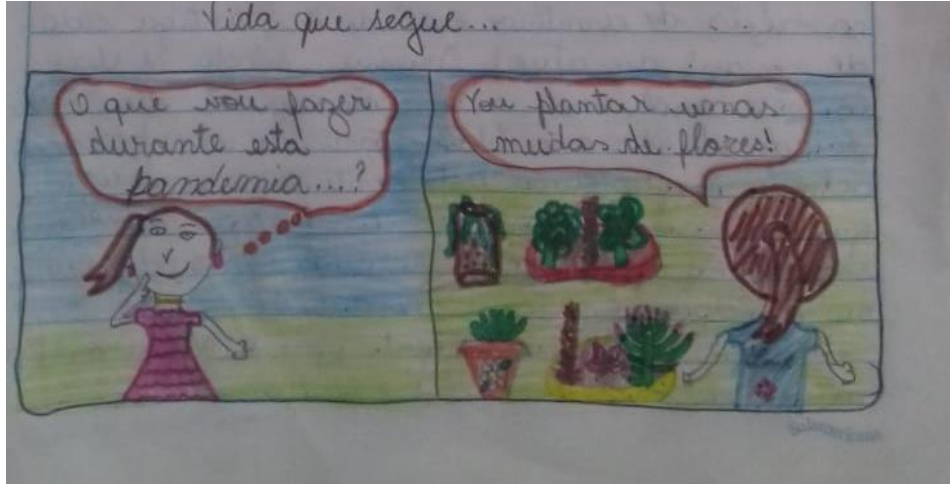 Vida que segue...
O que vou fazer
durante esta
pandemia...?
Vou plantar umas
mudas de flores!